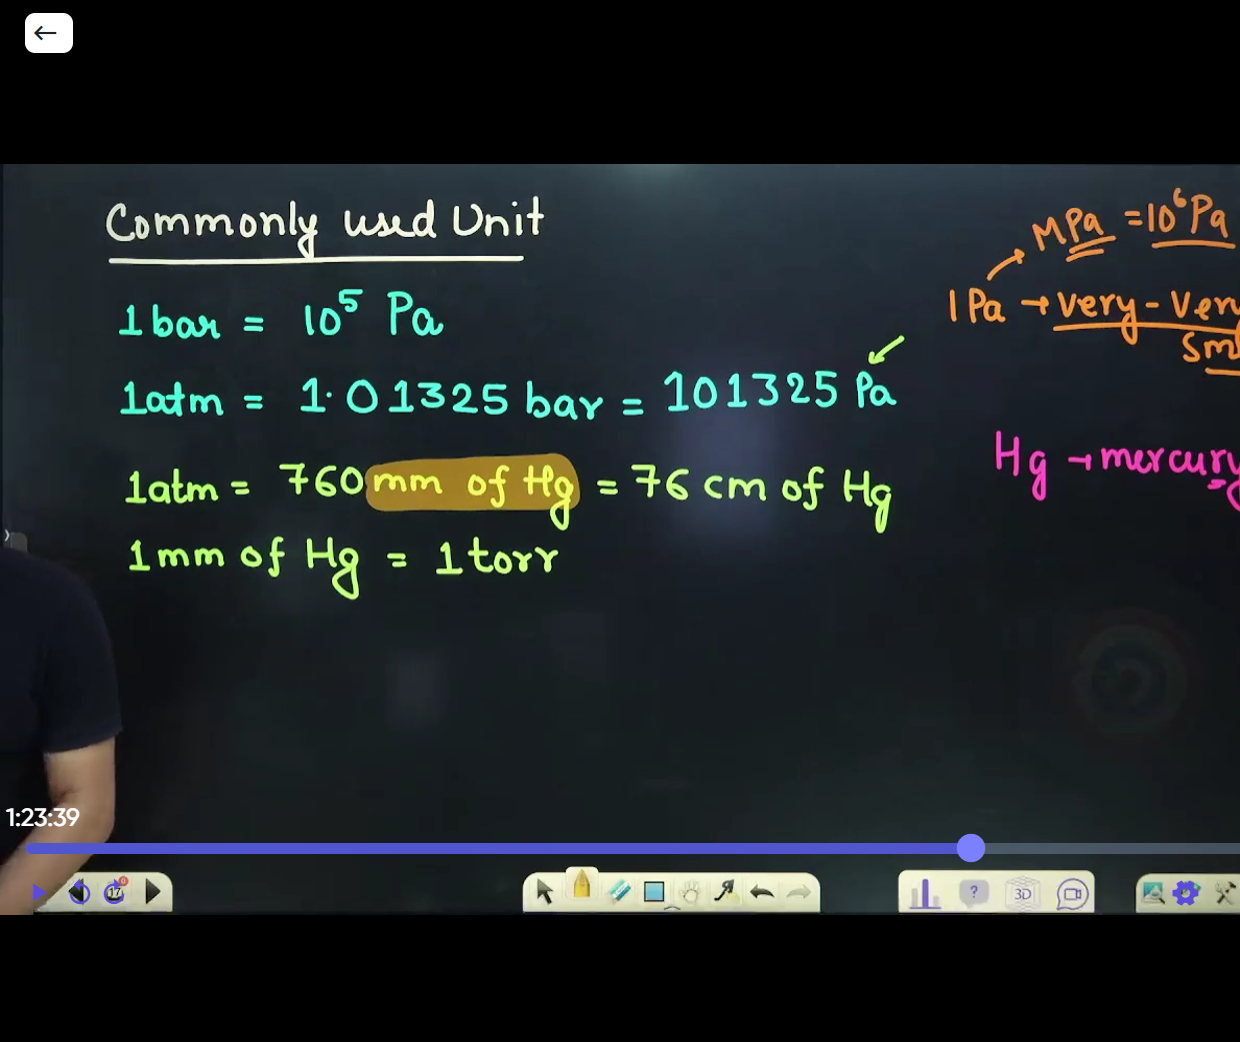 Commonly used Unit
1 bar = 10⁵ Pa
1atm = 1.01325 bar = 101325 Pa
1atm = 760 mm of Hg = 76 cm of Hg
1 mm of Hg = 1 torr
MPa = 10⁶ Pa
1Pa → very - Ver
Sm
Hg → mercury
1:23:39
17
?
3D